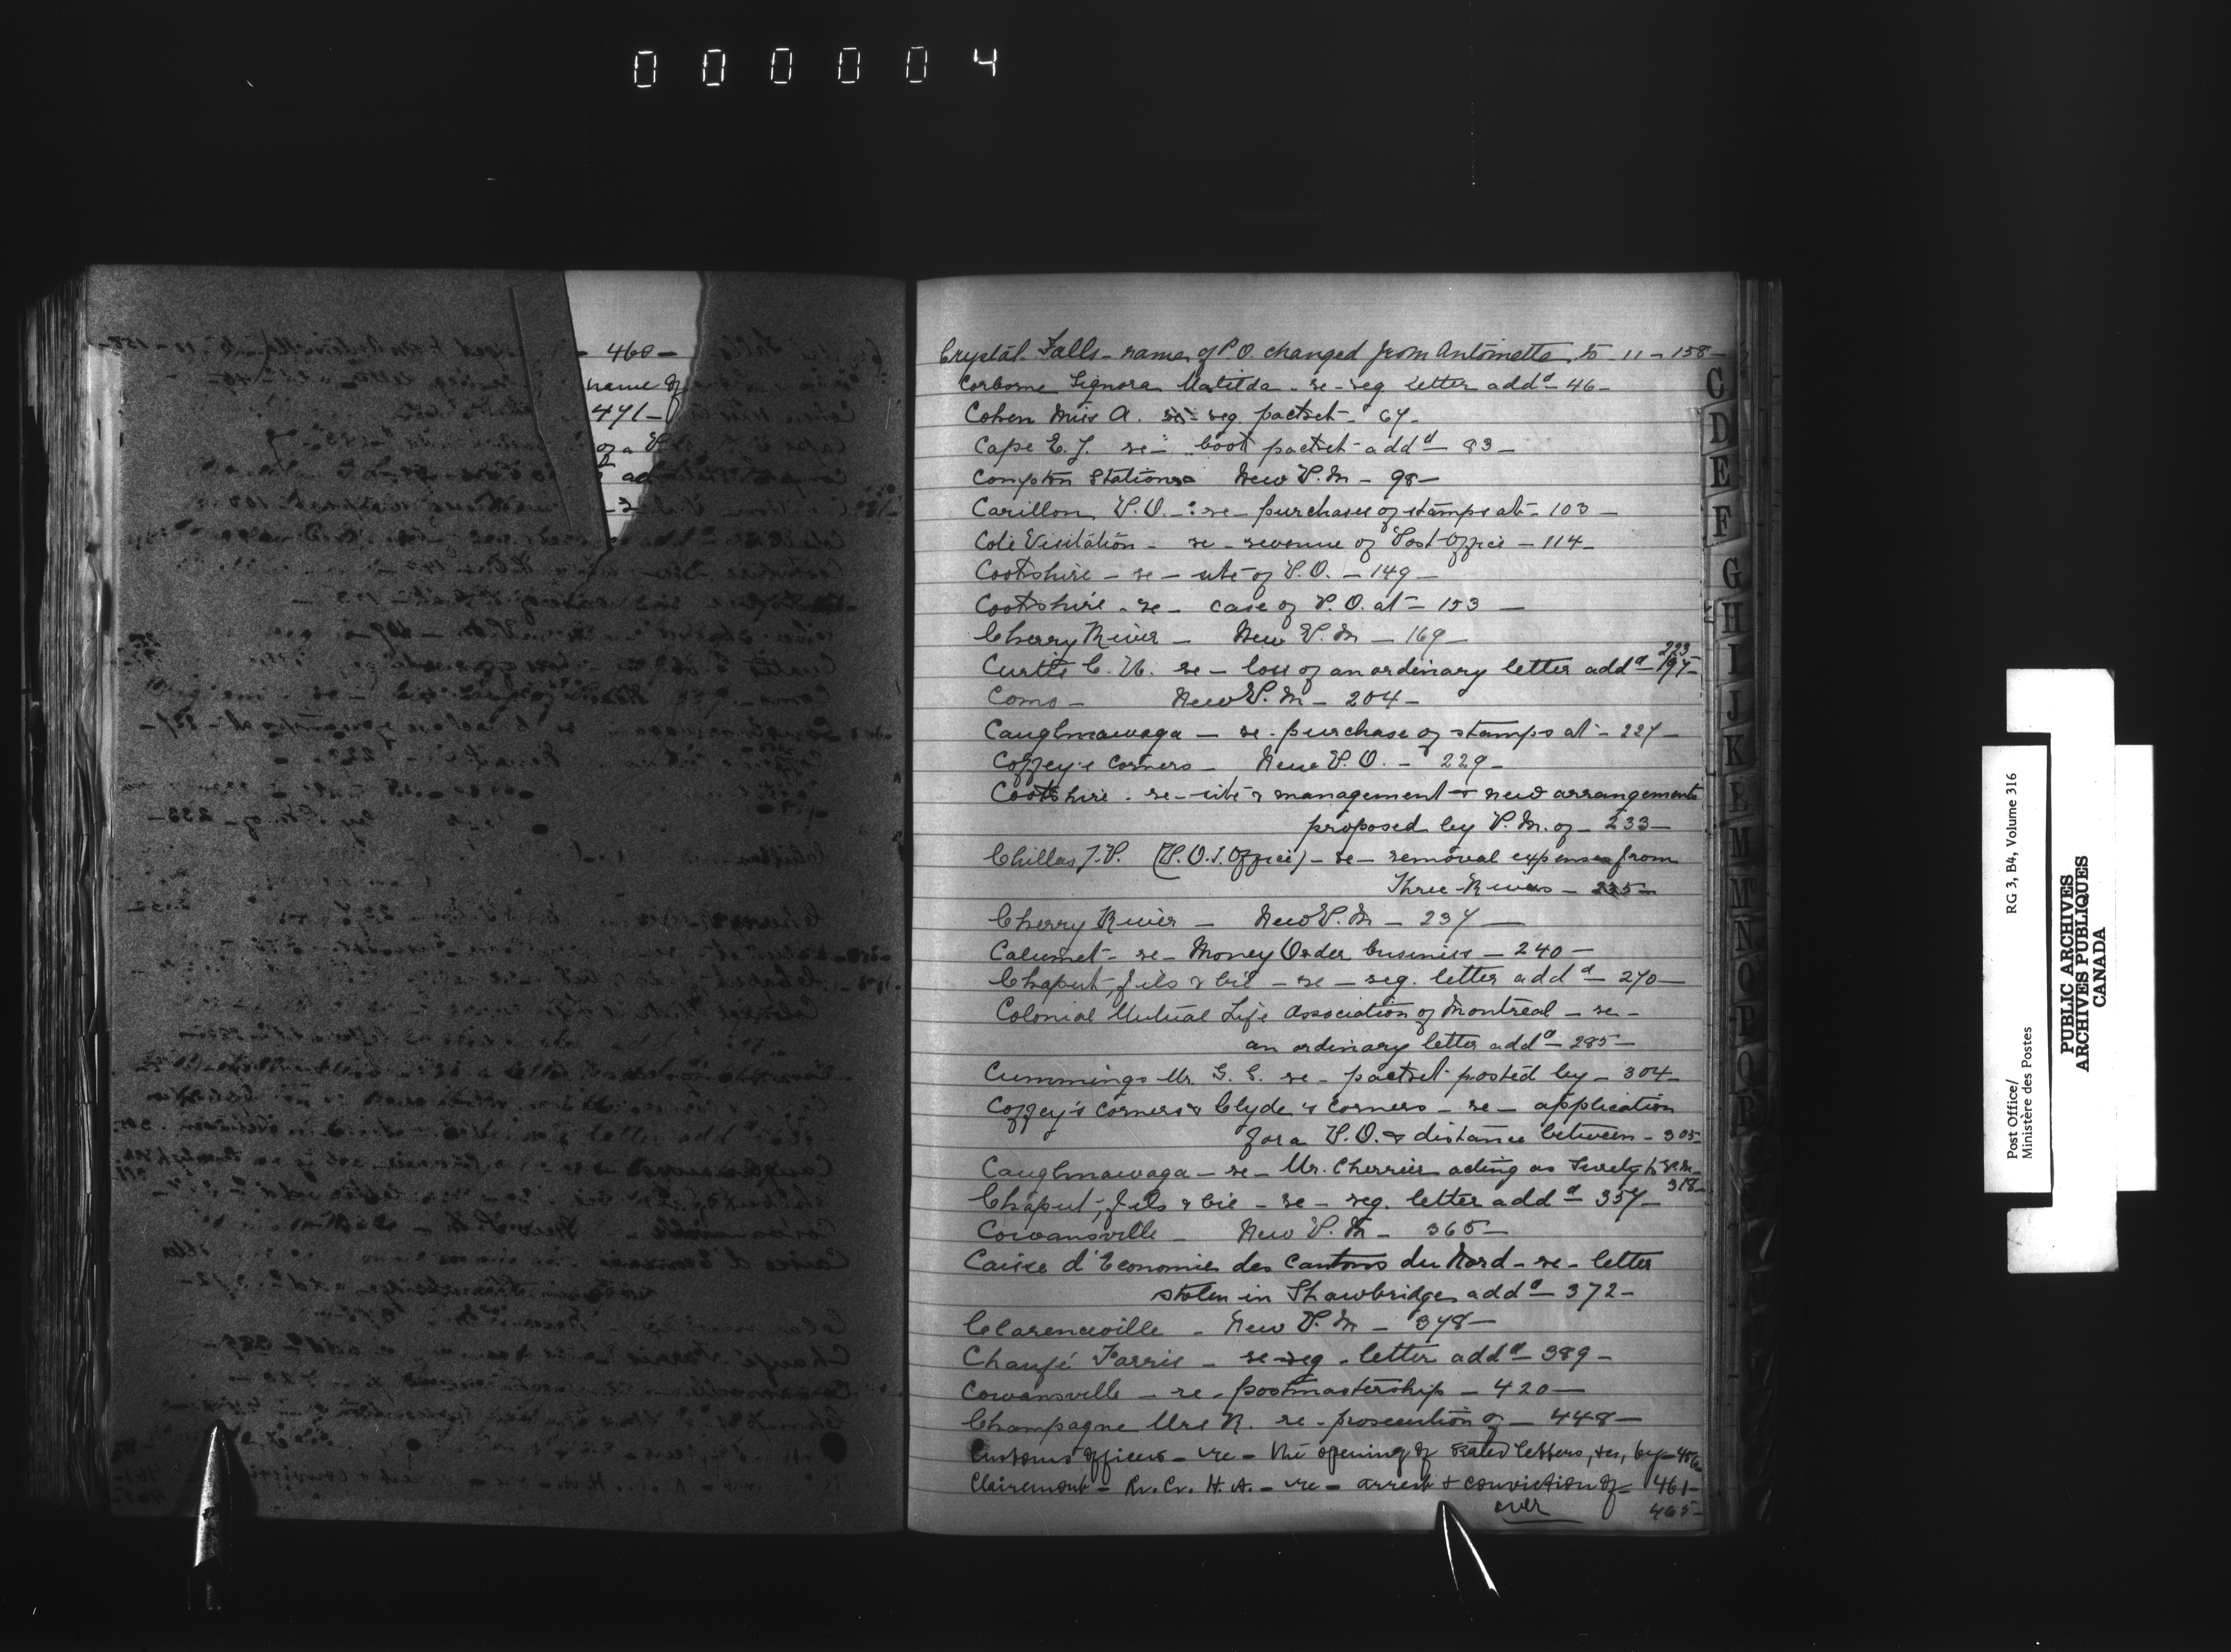 000004
- 460 -
name of
471 -
of a P
ad
Crystal Falls - name of P.O. changed from Antoinette, to - 11 - 158 -
Corborne Signora Matilda - re - reg letter addd - 46 -
Cohen Miss A. re - reg. packet - 67 -
Cape E. J. re - book packet addd - 83 -
Compton Station - New P.M - 98 -
Carillon, P.O. - re - purchases of stamps at - 103 -
Cote Visitation - re - revenue of Post-Office - 114 -
Cookshire - re - site of P.O. - 149 -
Cookshire - re - case of P.O. at - 153 -
Cherry River - New P.M - 169 -
223
Curtis C. N. re - loss of an ordinary letter addd - 197 -
Como - New P.M - 204 -
Caughnawaga - re - purchase of stamps at - 227 -
Coffey's Corners - New P.O. - 229 -
Cookshire - re - site & management & new arrangements
proposed by P.M. of - 233 -
Chillas J.P. (P.O.I. Office) - re - removal expenses from
Three-Rivers - 235 -
Cherry River - New P.M - 237 -
Calumet - re - Money Order business - 240 -
Chaput, fils & Cie - re - reg. letter addd - 270 -
Colonial Mutual Life Association of Montreal - re -
an ordinary letter addd - 285 -
Cummings Mr. G. C. re - packet posted by - 304 -
Coffey's Corners & Clyde's Corners - re - application
for a P.O. & distance between - 305 -
Caughnawaga - re - Mr. Cherrier acting as Surety to P.M. -
318 -
Chaput, fils & Cie - re - reg. letter addd - 357 -
Cowansville - New P.M - 365 -
Caisse d'Economie des Cantons du Nord - re - letter
stolen in Shawbridge addd - 372 -
Clarenceville - New P.M - 378 -
Chaufé Farris - re - reg - letter addd - 389 -
Cowansville - re - postmastership - 420 -
Champagne Mrs N. re - prosecution of - 448 -
Customs Officers - re - the opening of sealed letters, &c, by - 456 -
Clairemont - H. A. - re - arrest & conviction of - 461 -
over 465 -
C
D
E
F
G
H
I
J
K
L
M
Mc
N
O
P
Q
R
S
Post Office/
Ministère des Postes
RG 3, B4, Volume 316
PUBLIC ARCHIVES
ARCHIVES PUBLIQUES
CANADA